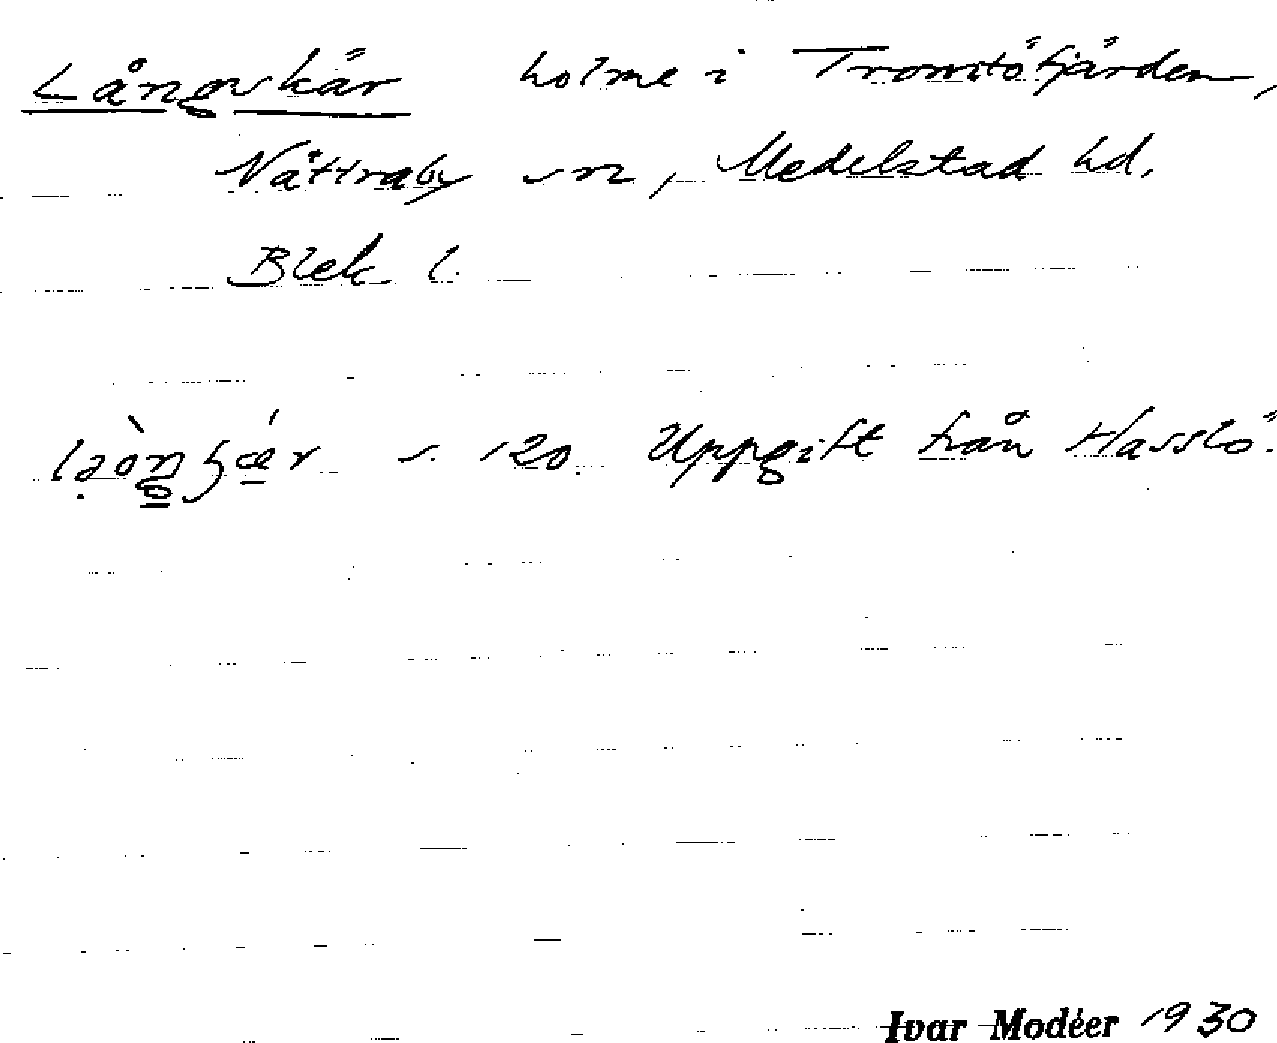 Långskär holme i Tromtöfjärden,
Nättraby sn, Medelstad hd.
Blek. l.
s. 120. Uppgift från Hasslö.
Ivar Modéer 1930